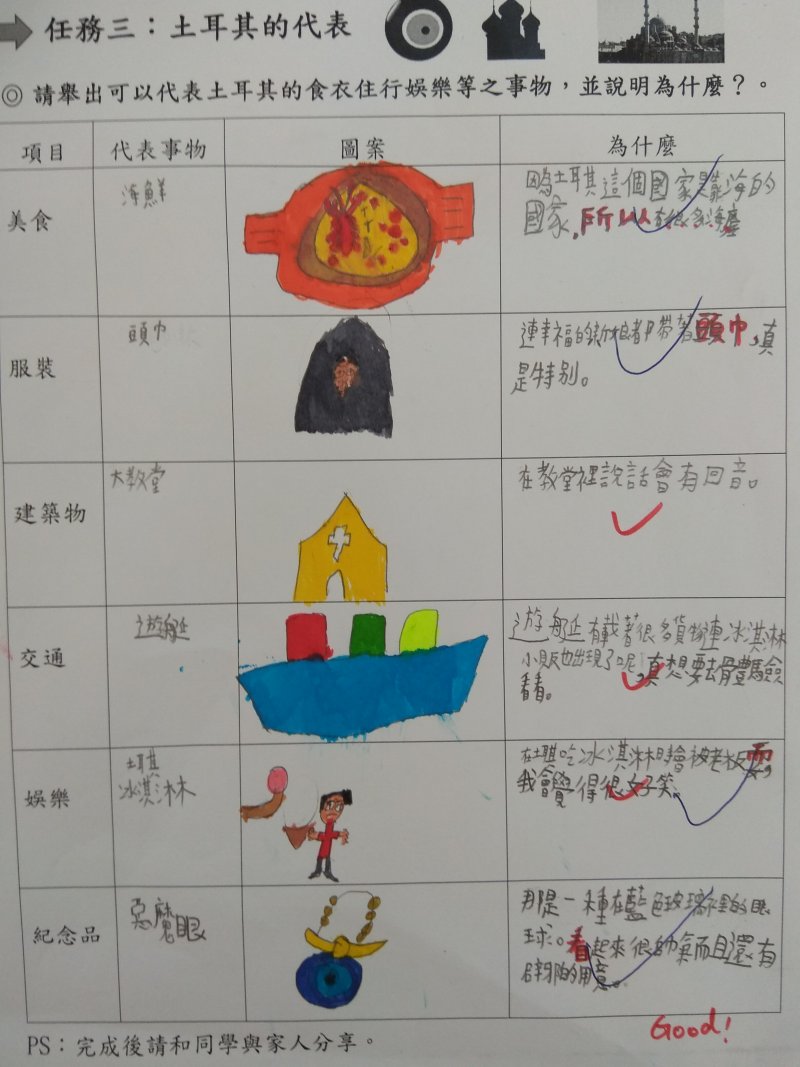 任務三：土耳其的代表
◎ 請舉出可以代表土耳其的食衣住行娛樂等之事物，並說明為什麼？。
項目 代表事物 圖案 為什麼
美食 海鮮
因為土耳其這個國家是靠海的
國家，所以有很多海產
服裝 頭巾
連幸福的新娘都帶著頭巾，真
是特別。
建築物 大教堂
在教堂裡說話會有回音。
交通 遊艇
遊艇有載著很多貨物連冰淇淋
小販也出現了呢！真想要去體驗
看看。
娛樂 土耳其
冰淇淋
在土耳其吃冰淇淋時會被老板耍
我會覺得很好笑。
紀念品 惡魔眼
那是一種在藍色玻璃裡的眼
球。看起來很帥氣而且還有
辟邪的用意。
Good!
PS：完成後請和同學與家人分享。